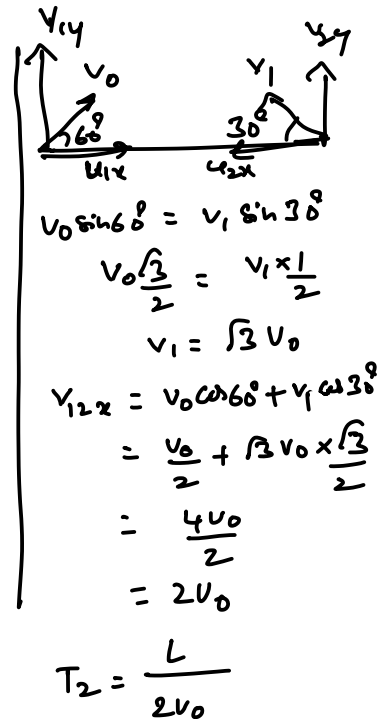 V₁y V₂y
V₀ V₁
60° 30°
u₁x u₂x
V₀ sin60° = V₁ sin30°
V₀ √3/2 = V₁ × 1/2
V₁ = √3 V₀
V₁₂x = V₀ cos60° + V₁ cos30°
= V₀/2 + √3 V₀ × √3/2
= 4V₀/2
= 2V₀
T₂ = L/2V₀